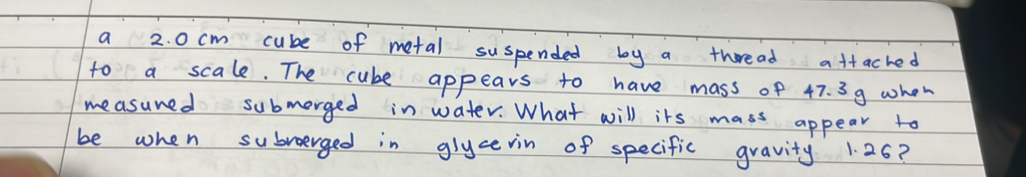 a 2.0 cm cube of metal suspended by a thread attached
to a scale. The cube appears to have mass of 47.3 g when
measured submerged in water. What will its mass appear to
be when submerged in glycerin of specific gravity 1.26?